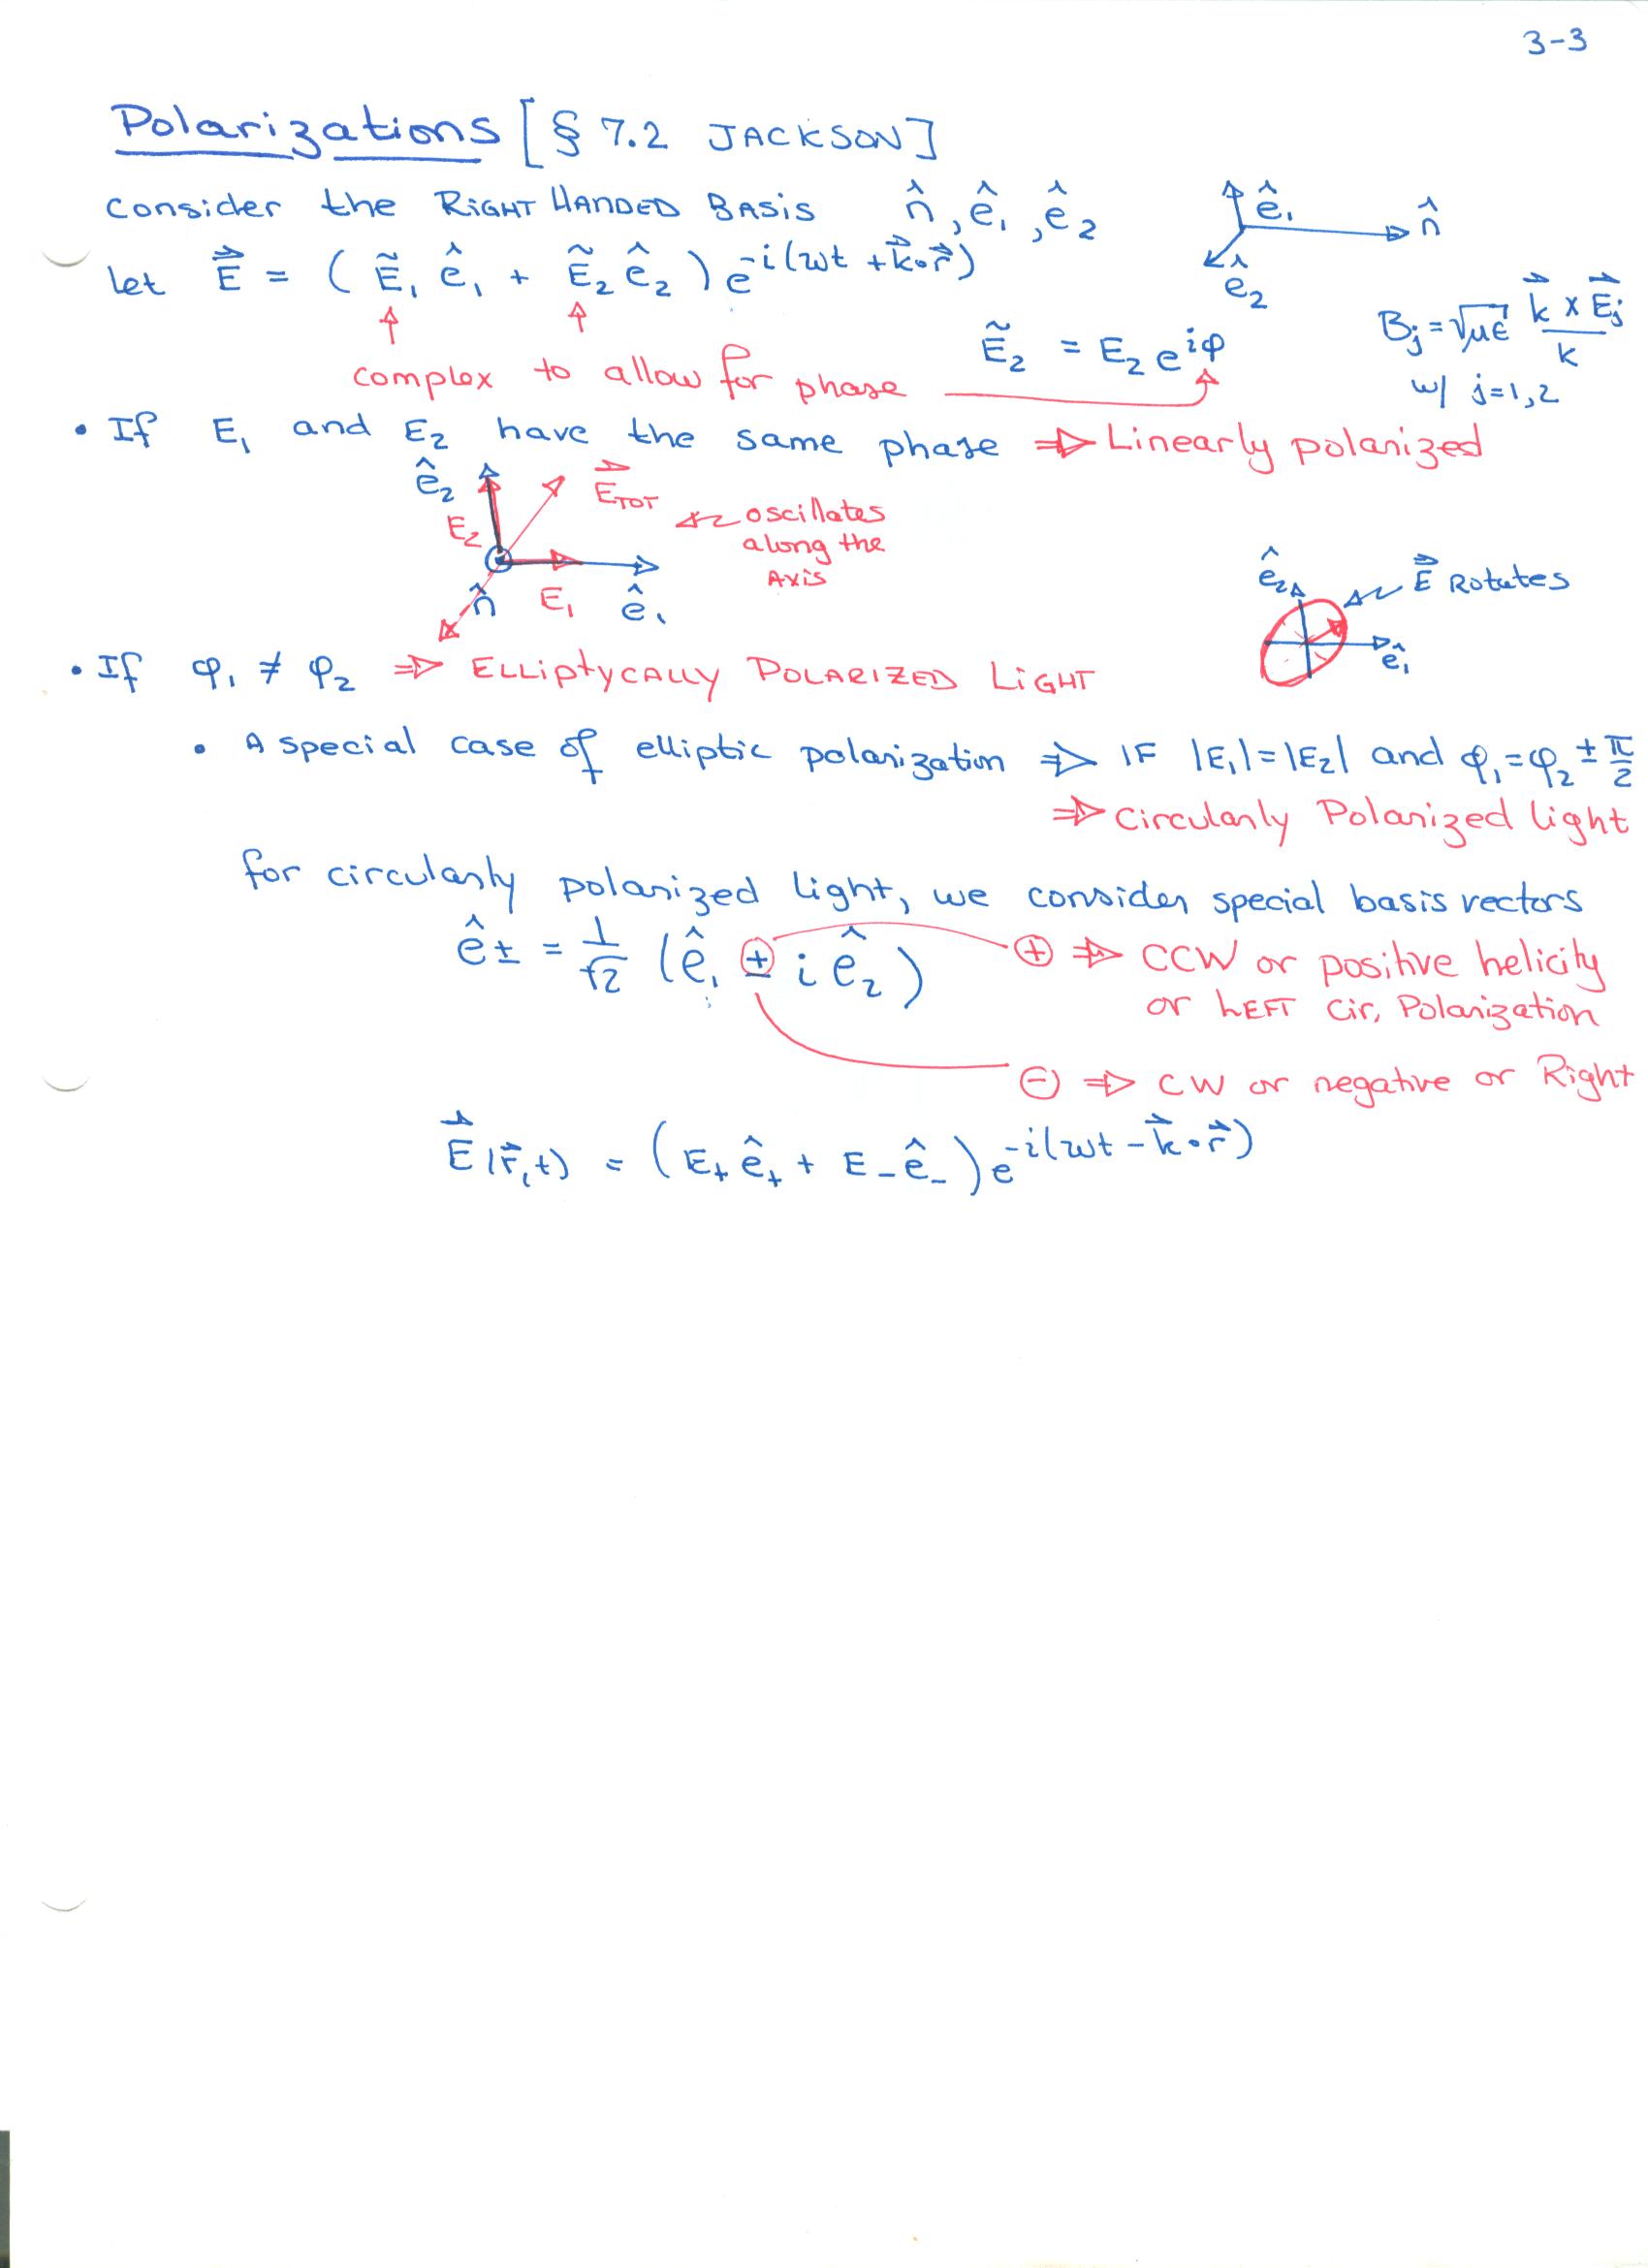 3-3
Polarizations [§ 7.2 JACKSON]
consider the RIGHT HANDED BASIS n̂, ê₁, ê₂
ê₁
n̂
ê₂
let E⃗ = ( Ẽ₁ ê₁ + Ẽ₂ ê₂ ) e^{-i(ωt + k⃗·r⃗)}
Ẽ₂ = E₂ e^{iφ}
Bⱼ = √με k⃗ × E⃗ⱼ / k
w/ j=1,2
complex to allow for phase
• If E₁ and E₂ have the same phase ⇒ Linearly polarized
ê₂
E⃗_TOT
oscillates
along the
AXIS
E₂
n̂
E₁
ê₁
ê₂
E⃗ Rotates
ê₁
• If φ₁ ≠ φ₂ ⇒ ELLIPTYCALLY POLARIZED LIGHT
• A special case of elliptic polarization ⇒ IF |E₁|=|E₂| and φ₁=φ₂ ± π/2
⇒ Circularly Polarized light
for circularly polarized light, we consider special basis vectors
ê± = 1/√2 (ê₁ ± i ê₂)
⊕ ⇒ CCW or positive helicity
or LEFT cir, Polarization
⊖ ⇒ CW or negative or Right
E⃗(r⃗,t) = (E₊ ê₊ + E₋ ê₋) e^{-i(ωt - k⃗·r⃗)}